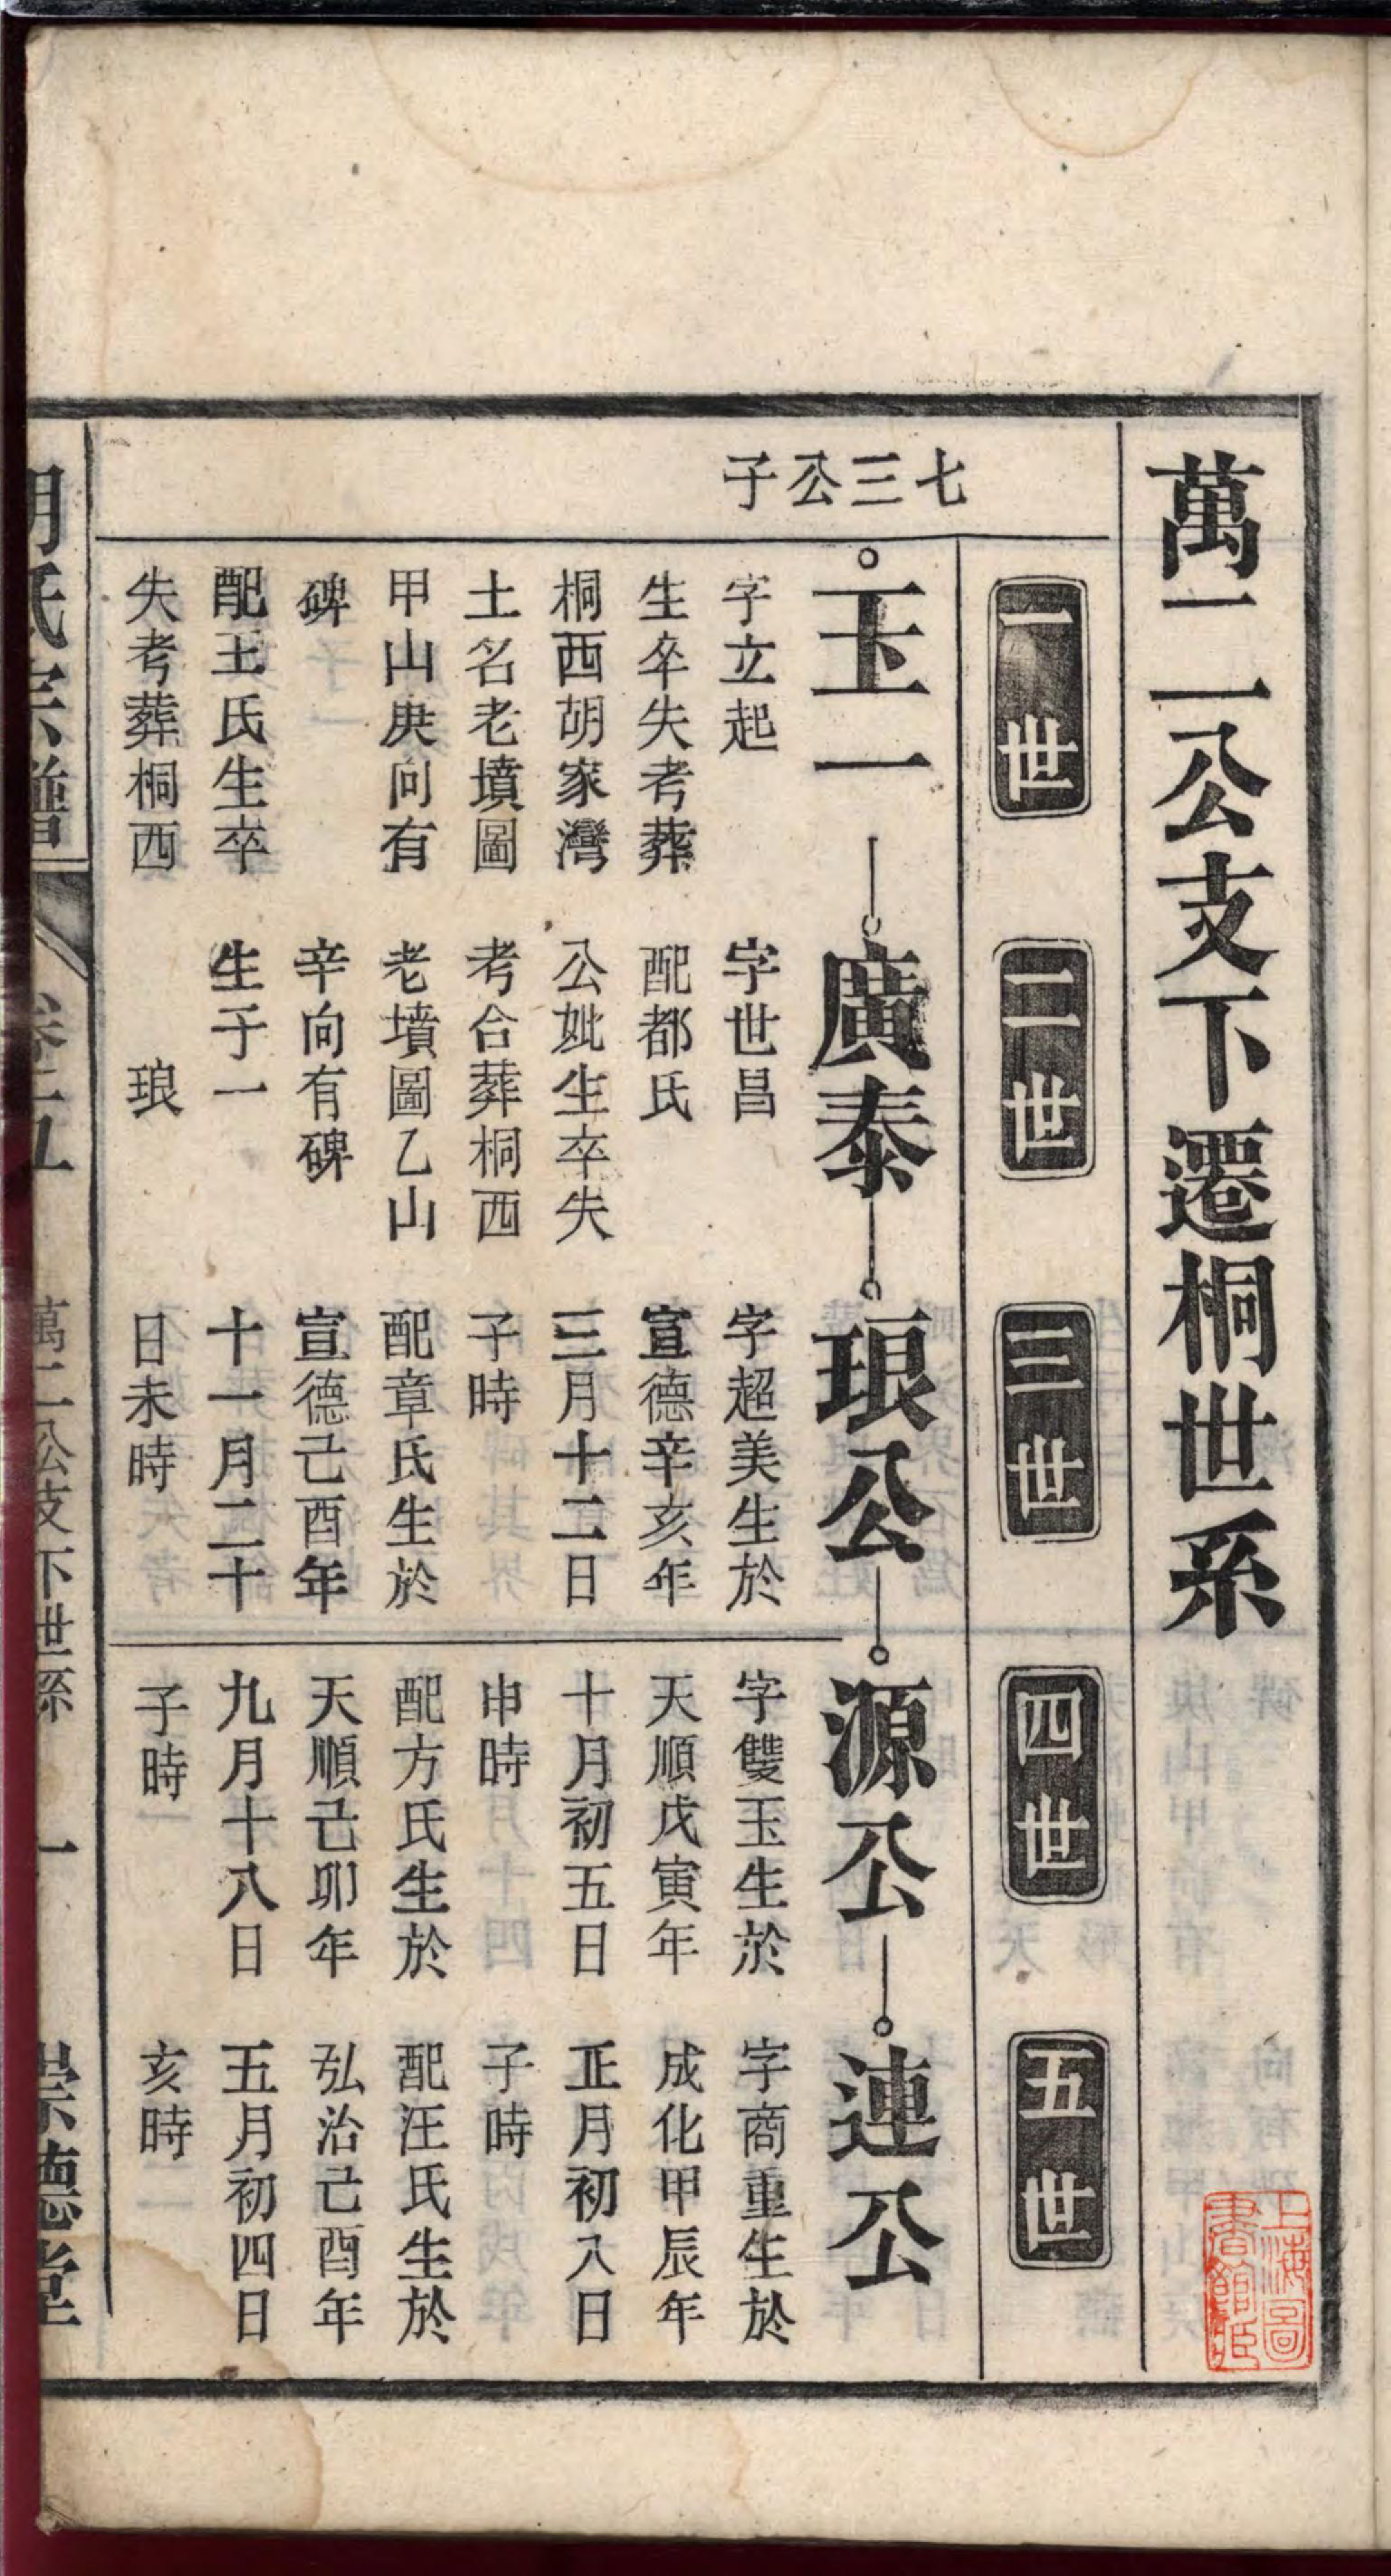 萬二公支下遷桐世系
一世
二世
三世
四世
五世
七三公子
玉一
字立起
生卒失考葬
桐西胡家灣
土名老墳圖
甲山庚向有
碑
配王氏生卒
失考葬桐西
廣泰
字世昌
配都氏
公妣生卒失
考合葬桐西
老墳圖乙山
辛向有碑
生子一
琅
琅公
字超美生於
宣德辛亥年
三月十二日
子時
配章氏生於
宣德己酉年
十一月二十
日未時
源公
字雙玉生於
天順戊寅年
十月初五日
申時
配方氏生於
天順己卯年
九月十八日
子時
連公
字商重生於
成化甲辰年
正月初八日
子時
配汪氏生於
弘治己酉年
五月初四日
亥時
胡氏宗譜
萬二公支下世系
一
崇德堂
上海圖
書館藏